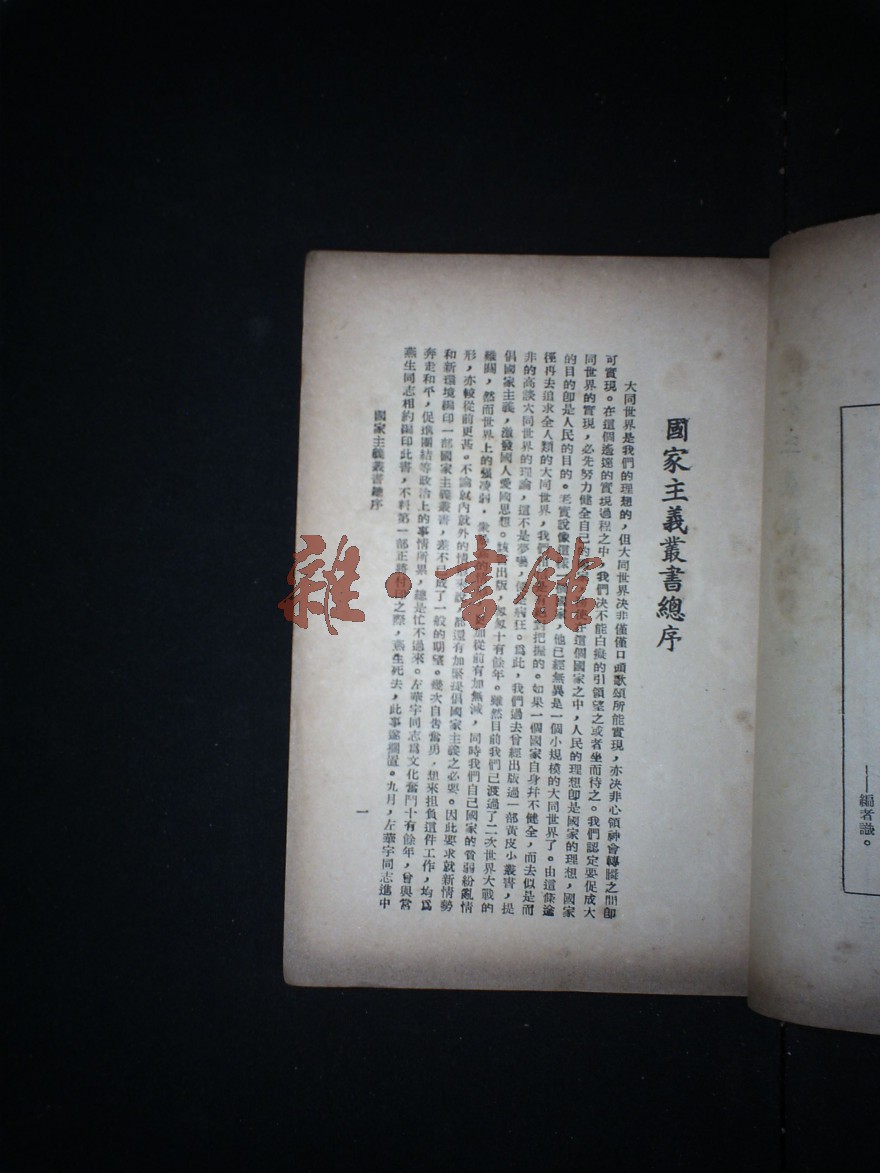 ——編者識。
國家主義叢書總序
大同世界是我們的理想的，但大同世界決非僅僅口頭歌頌所能實現，亦決非心領神會轉瞬之間卽
可實現。在這個遙遠的實現過程之中，我們決不能白癡的引領望之或者坐而待之。我們認定要促成大
同世界的實現，必先努力健全自己的在這個國家之中，人民的理想卽是國家的理想，國家
的目的卽是人民的目的。老實說像這國家，他已經無異是一個小規模的大同世界了。由這條途
徑再去追求全人類的大同世界，我們把握的。如果一個國家自身幷不健全，而去似是而
非的高談大同世界的理論，這不是夢囈，病狂。爲此，我們過去曾經出版過一部黃皮小叢書，提
倡國家主義，激發國人愛國思想。出版，十有餘年。雖然目前我們已渡過了二次世界大戰的
難關，然而世界上的强凌弱，衆的加從前有加無減，同時我們自己國家的貧弱紛亂情
形，亦較從前更甚。不論就內就外的情來說，都還有加緊提倡國家主義之必要。因此要求就新情勢
和新環境編印一部國家主義叢書，差不已成了一般的期望。幾次自吿奮勇，想來担負這件工作，均爲
奔走和平，促進團結等政治上的事情所累，總是忙不過來。左華宇同志爲文化奮鬥十有餘年，曾與常
燕生同志相約編印此書，不料第一部正將付印之際，燕生死去，此事遂擱置。九月，左華宇同志進中
國家主義叢書總序
一
雜·書館